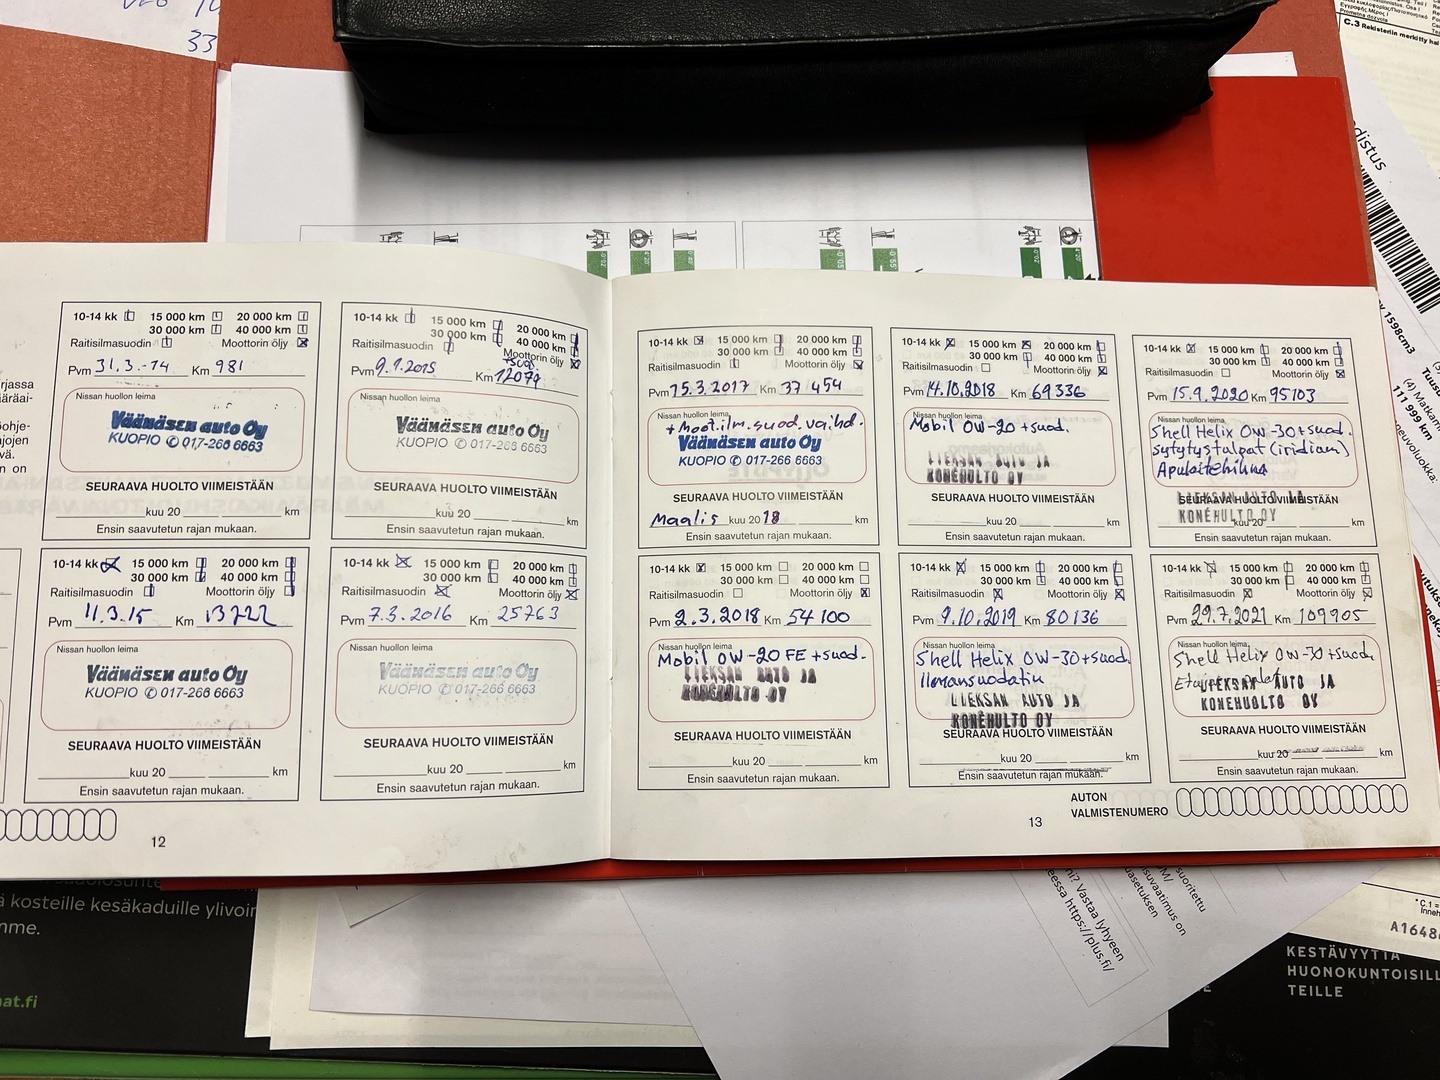 33
C.3 Rekisteriin merkitty hal
distus
1598cm3
111 999 km
rjassa
määräai-
ohje-
ajojen
vä.
n on
10-14 kk 15 000 km 20 000 km
30 000 km 40 000 km
Raitisilmasuodin Moottorin öljy
Pvm 31.3.-14 Km 981
Nissan huollon leima
Väänäsen auto Oy
KUOPIO ✆ 017-266 6663
SEURAAVA HUOLTO VIIMEISTÄÄN
kuu 20 km
Ensin saavutetun rajan mukaan.
10-14 kk 15 000 km 20 000 km
30 000 km 40 000 km
Raitisilmasuodin Moottorin öljy
Pvm 9.1.2015 Km 12079
Nissan huollon leima
Väänäsen auto Oy
KUOPIO ✆ 017-266 6663
SEURAAVA HUOLTO VIIMEISTÄÄN
kuu 20 km
Ensin saavutetun rajan mukaan.
10-14 kk 15 000 km 20 000 km
30 000 km 40 000 km
Raitisilmasuodin Moottorin öljy
Pvm 11.3.15 Km 13722
Nissan huollon leima
Väänäsen auto Oy
KUOPIO ✆ 017-266 6663
SEURAAVA HUOLTO VIIMEISTÄÄN
kuu 20 km
Ensin saavutetun rajan mukaan.
10-14 kk 15 000 km 20 000 km
30 000 km 40 000 km
Raitisilmasuodin Moottorin öljy
Pvm 7.3.2016 Km 25763
Nissan huollon leima
Väänäsen auto Oy
KUOPIO ✆ 017-266 6663
SEURAAVA HUOLTO VIIMEISTÄÄN
kuu 20 km
Ensin saavutetun rajan mukaan.
12
10-14 kk 15 000 km 20 000 km
30 000 km 40 000 km
Raitisilmasuodin Moottorin öljy
Pvm 15.3.2017 Km 37 454
Nissan huollon leima
+ Moot.ilm.suod. vaihd.
Väänäsen auto Oy
KUOPIO ✆ 017-266 6663
SEURAAVA HUOLTO VIIMEISTÄÄN
Maalis kuu 2018 km
Ensin saavutetun rajan mukaan.
10-14 kk 15 000 km 20 000 km
30 000 km 40 000 km
Raitisilmasuodin Moottorin öljy
Pvm 14.10.2018 Km 69336
Nissan huollon leima
Mobil 0W-20 +suod.
LIEKSAN AUTO JA
KONEHUOLTO OY
SEURAAVA HUOLTO VIIMEISTÄÄN
kuu 20 km
Ensin saavutetun rajan mukaan.
10-14 kk 15 000 km 20 000 km
30 000 km 40 000 km
Raitisilmasuodin Moottorin öljy
Pvm 15.9.2020 Km 95103
Nissan huollon leima
Shell Helix 0W-30+suod.
sytytystulpat (iridium)
Apulaitehihna
LIEKSAN AUTO JA
SEURAAVA HUOLTO VIIMEISTÄÄN
KONEHUOLTO OY
kuu 20 km
Ensin saavutetun rajan mukaan.
10-14 kk 15 000 km 20 000 km
30 000 km 40 000 km
Raitisilmasuodin Moottorin öljy
Pvm 2.3.2018 Km 54 100
Nissan huollon leima
Mobil 0W-20 FE +suod.
LIEKSAN AUTO JA
KONEHUOLTO OY
SEURAAVA HUOLTO VIIMEISTÄÄN
kuu 20 km
Ensin saavutetun rajan mukaan.
10-14 kk 15 000 km 20 000 km
30 000 km 40 000 km
Raitisilmasuodin Moottorin öljy
Pvm 9.10.2019 Km 80136
Nissan huollon leima
Shell Helix 0W-30+suod.
Ilmansuodatin
LIEKSAN AUTO JA
KONEHUOLTO OY
SEURAAVA HUOLTO VIIMEISTÄÄN
kuu 20 km
Ensin saavutetun rajan mukaan.
10-14 kk 15 000 km 20 000 km
30 000 km 40 000 km
Raitisilmasuodin Moottorin öljy
Pvm 29.7.2021 Km 109905
Nissan huollon leima
Shell Helix 0W-30+suod.
LIEKSAN AUTO JA
KONEHUOLTO OY
SEURAAVA HUOLTO VIIMEISTÄÄN
kuu 20 km
Ensin saavutetun rajan mukaan.
AUTON
VALMISTENUMERO
13
ä kosteille kesäkaduille ylivoir
mme.
at.fi
ni? Vastaa lyhyeen
eessa https://plus.fi/
suoritettu
suvaatimus on
uasetuksen
A1648
KESTÄVYYTTÄ
HUONOKUNTOISILL
TEILLE